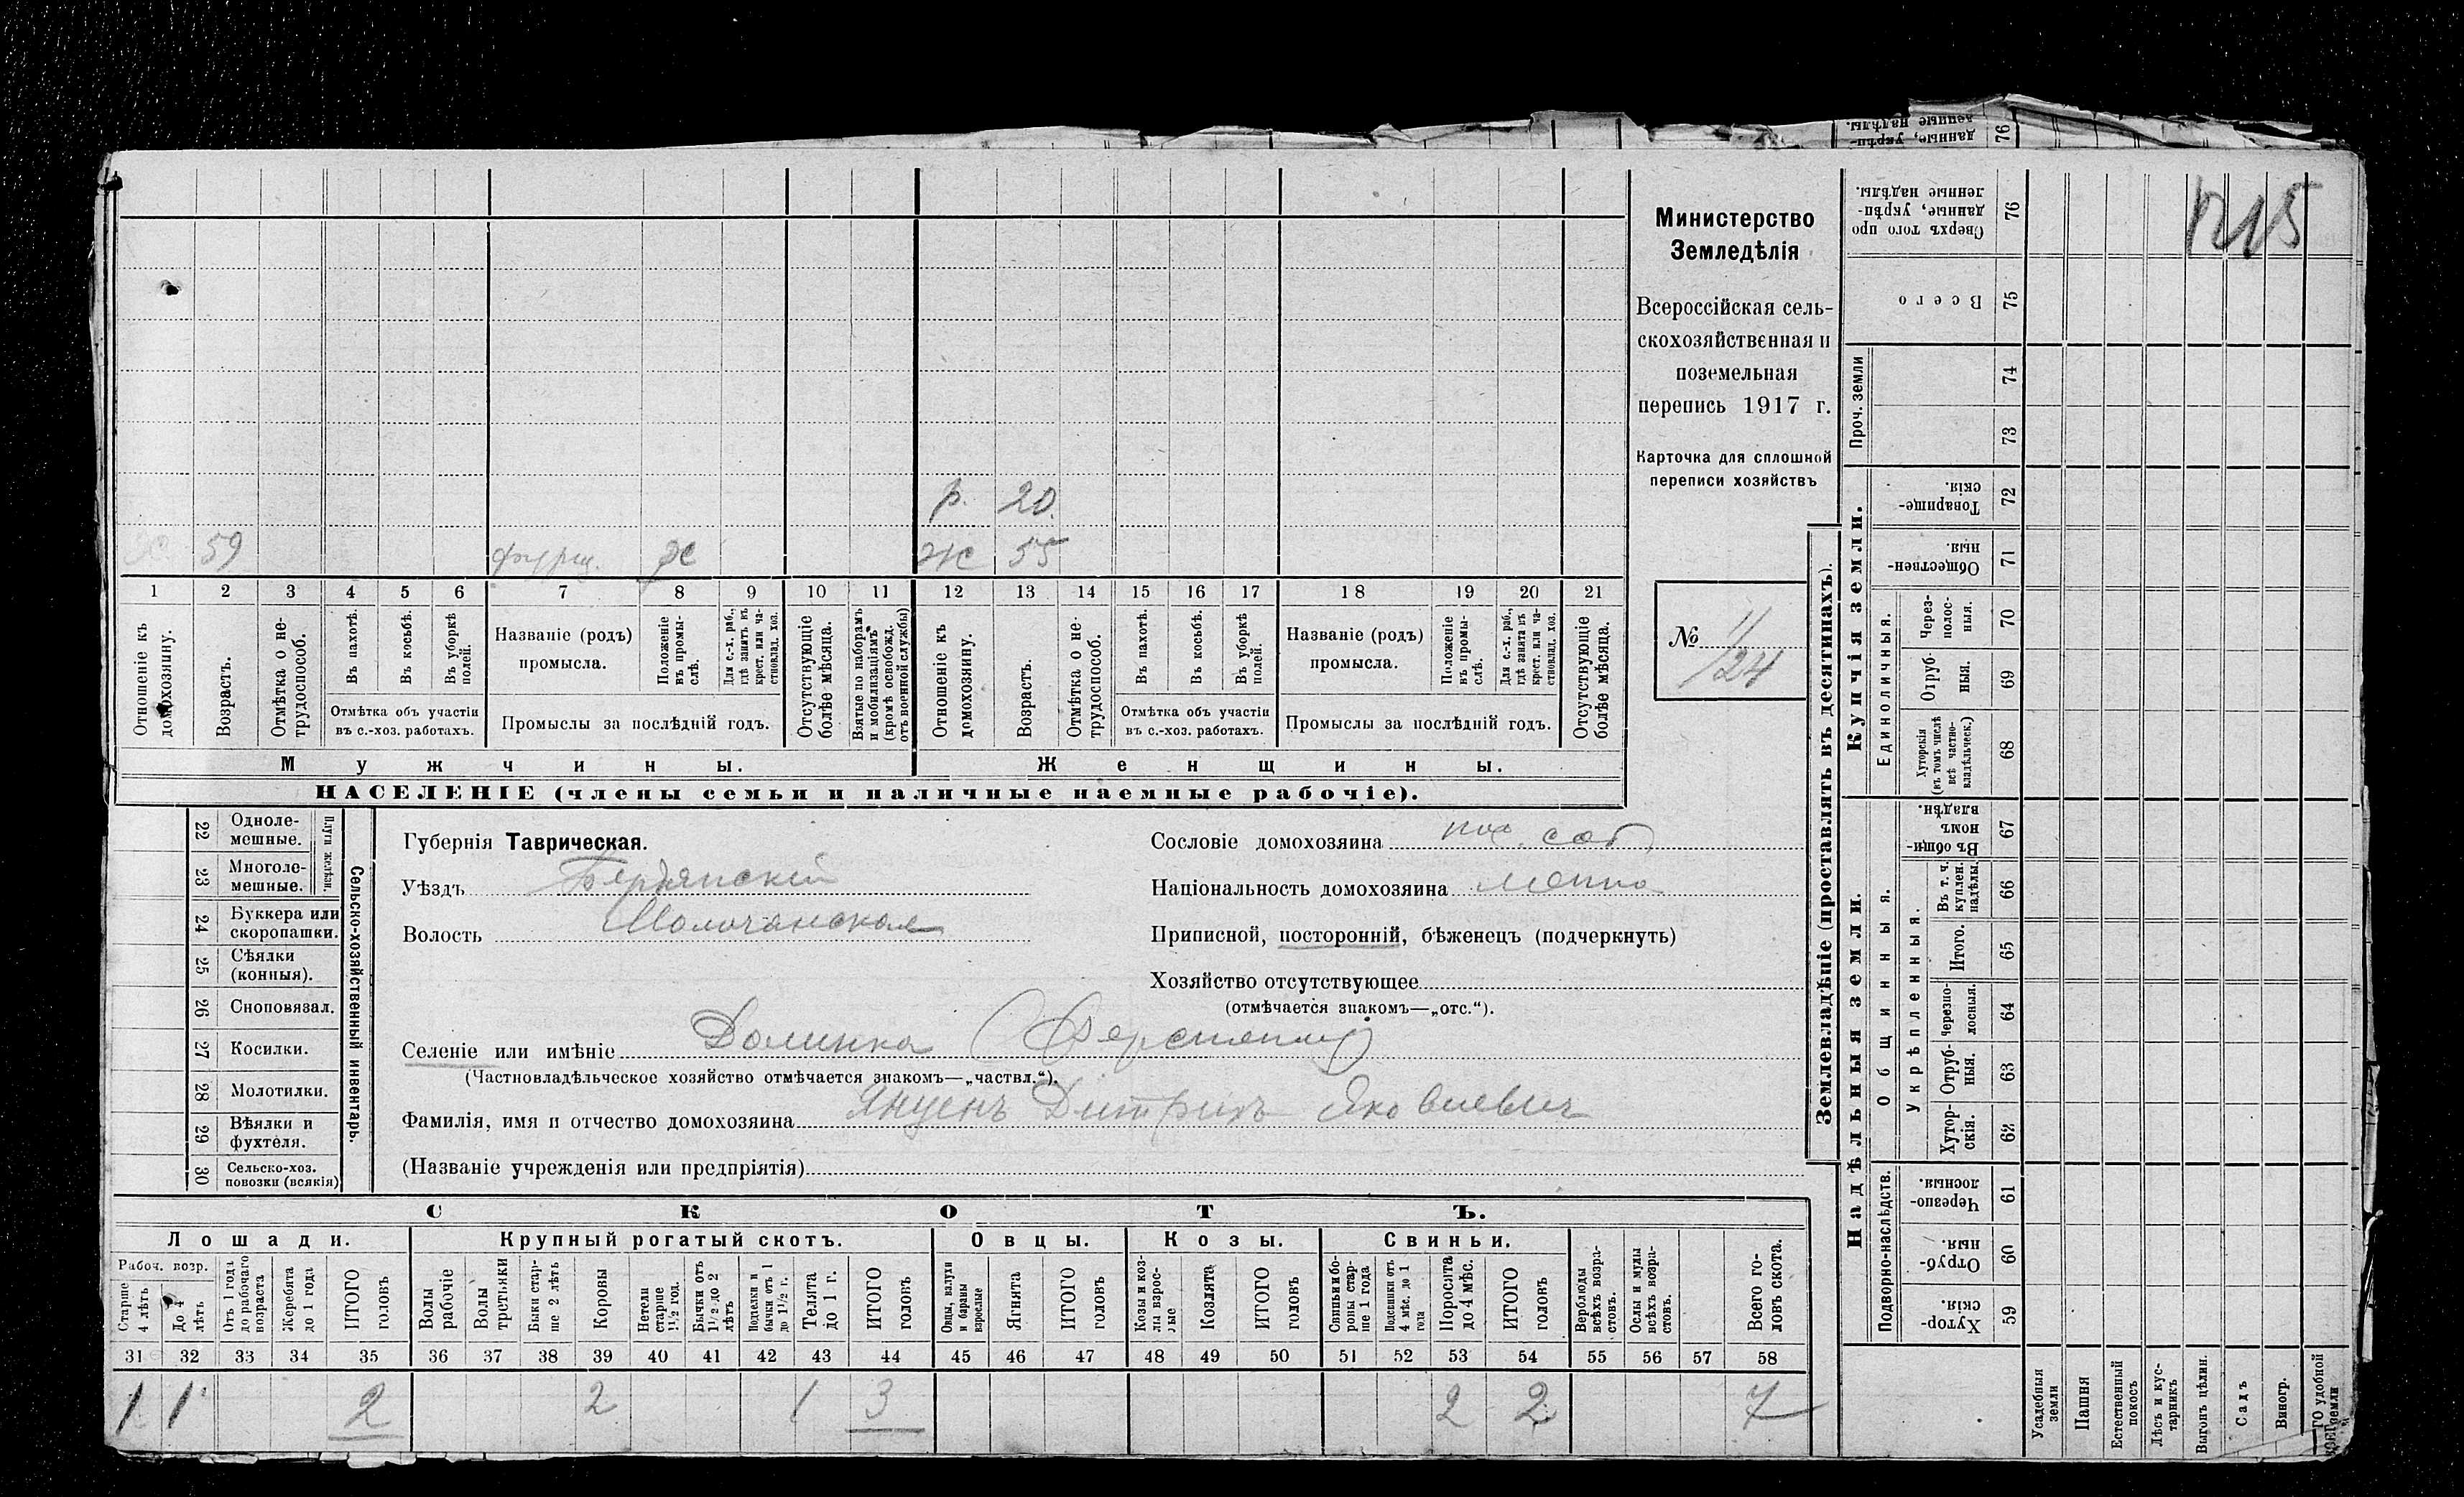 Министерство
Земледѣлія
Всероссійская сель-
скохозяйственная и
поземельная
перепись 1917 г.
Карточка для сплошной
переписи хозяйствъ
№ 11
124
р. 20.
59 ж
ж 55
1 2 3 4 5 6 7 8 9 10 11 12 13 14 15 16 17 18 19 20 21
Отношеніе къ домохозяину.
Возрастъ.
Отмѣтка о не-трудоспособ.
Въ пахотѣ.
Въ косьбѣ.
Въ уборкѣ полей.
Отмѣтка объ участіи
въ с.-хоз. работахъ.
Названіе (родъ)
промысла.
Положеніе въ промы-слѣ.
Для с.-х. раб., гдѣ занятъ въ крест. или ча-стновлад. хоз.
Промыслы за послѣдній годъ.
Отсутствующіе болѣе мѣсяца.
Взятые по наборамъ и мобилизаціямъ (кромѣ освобожд. отъ военной службы)
Отношеніе къ домохозяину.
Возрастъ.
Отмѣтка о не-трудоспособ.
Въ пахотѣ.
Въ косьбѣ.
Въ уборкѣ полей.
Отмѣтка объ участіи
въ с.-хоз. работахъ.
Названіе (родъ)
промысла.
Положеніе въ промы-слѣ.
Для с.-х. раб., гдѣ занята въ крест. или ча-стновлад. хоз.
Промыслы за послѣдній годъ.
Отсутствующіе болѣе мѣсяца.
Мужчины.
Женщины.
НАСЕЛЕНІЕ (члены семьи и наличные наемные рабочіе).
22 Одноле-мешные.
23 Многоле-мешные.
Плуги желѣзн.
24 Буккера или скоропашки.
25 Сѣялки (конныя).
26 Сноповязал.
27 Косилки.
28 Молотилки.
29 Вѣялки и фухтеля.
30 Сельско-хоз. повозки (всякія)
Сельско-хозяйственный инвентарь.
Губернія Таврическая.
Уѣздъ Бердянскій
Волость Молочанская
Сословіе домохозяина пос. соб
Національность домохозяина менно
Приписной, посторонній, бѣженецъ (подчеркнуть)
Хозяйство отсутствующее
(отмѣчается знакомъ—„отс.“).
Селеніе или имѣніе Долинка
(Частновладѣльческое хозяйство отмѣчается знакомъ—„частвл.“).
Фамилія, имя и отчество домохозяина Янценъ Дитрихъ Яковлевич
(Названіе учрежденія или предпріятія)
СКОТЪ.
Лошади.
Крупный рогатый скотъ.
Овцы.
Козы.
Свиньи.
Рабоч. возр.
Старше 4 лѣтъ
До 4 лѣтъ
Отъ 1 года до рабочаго возраста
Жеребята до 1 года
ИТОГО головъ
Волы рабочіе
Волы третьяки
Быки стар-ше 2 лѣтъ
Коровы
Нетели старше 1½ год.
Бычки отъ 1½ до 2 лѣтъ
Подтелки и бычки отъ 1 до 1½ г.
Телята до 1 г.
ИТОГО головъ
Овцы, валухи и бараны взрослые
Ягнята
ИТОГО головъ
Козы и коз-лы взрос-лые
Козлята
ИТОГО головъ
Свиньи и бо-ровы стар-ше 1 года
Подсвинки отъ 4 мѣс. до 1 года
Поросята до 4 мѣс.
ИТОГО головъ
Верблюды всѣхъ возра-стовъ.
Ослы и мулы всѣхъ возра-стовъ.
Всего го-ловъ скота.
31 32 33 34 35 36 37 38 39 40 41 42 43 44 45 46 47 48 49 50 51 52 53 54 55 56 57 58
1 1 2 2 1 3 2 2 7
Землевладѣніе (проставлять въ десятинахъ).
1215
76 Сверхъ того про данные, укрѣп-ленные надѣлы.
75 Всего
Проч. земли
74
73
Купчія земли.
72 Товарище-скія.
71 Обществен-ныя.
Единоличныя.
70 Через-полос-ныя.
69 Отруб-ныя.
68 Хуторскія (въ томъ числѣ всѣ частно-владѣльческ.)
Надѣльныя земли.
Общинныя.
67 Въ общи-номъ владѣн.
Укрѣпленныя.
66 Въ т. ч. куплен. надѣлы
65 Итого.
64 Черезпо-лосныя.
63 Отруб-ныя.
62 Хутор-скія.
Подворно-наслѣдств.
61 Черезпо-лосныя.
60 Отруб-ныя.
59 Хутор-скія.
Усадебныя земли
Пашня
Естественный покосъ
Лѣсъ и кус-тарникъ
Выгонъ цѣлин.
Садъ
Виногр.